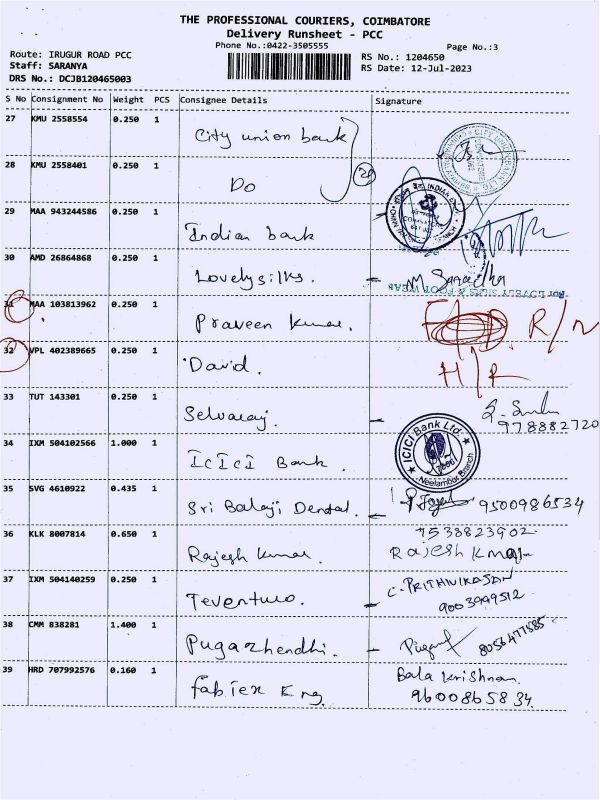 THE PROFESSIONAL COURIERS, COIMBATORE
Delivery Runsheet - PCC
Phone No.:0422-3505555
Page No.:3
Route: IRUGUR ROAD PCC
RS No.: 1204650
Staff: SARANYA
RS Date: 12-Jul-2023
DRS No.: DCJB120465003
S No Consignment No Weight PCS Consignee Details Signature
27 KMU 2558554 0.250 1 City union bank
28 KMU 2558401 0.250 1 Do
29 MAA 943244586 0.250 1 Indian bank
30 AMD 26864868 0.250 1 Lovelysilks.
31 MAA 103813962 0.250 1 Praveen kumar. R/N
32 VPL 402389665 0.250 1 David. H/R
33 TUT 143301 0.250 1 Selvaraj 978882720
34 IXM 504102566 1.000 1 ICICI Bank. ICICI Bank Ltd. Neelambur Branch
35 SVG 4610922 0.435 1 Sri Balaji Dental. 9500986534
36 KLK 8007814 0.650 1 Rajesh kumar 7538823902
37 IXM 504140259 0.250 1 C. PRITHIVIRAJAN 9003999512
38 CMM 838281 1.400 1 Pugazhendhi. 8056477585
39 HRD 707992576 0.160 1 Fabtex Eng Bala krishnan 9600865834